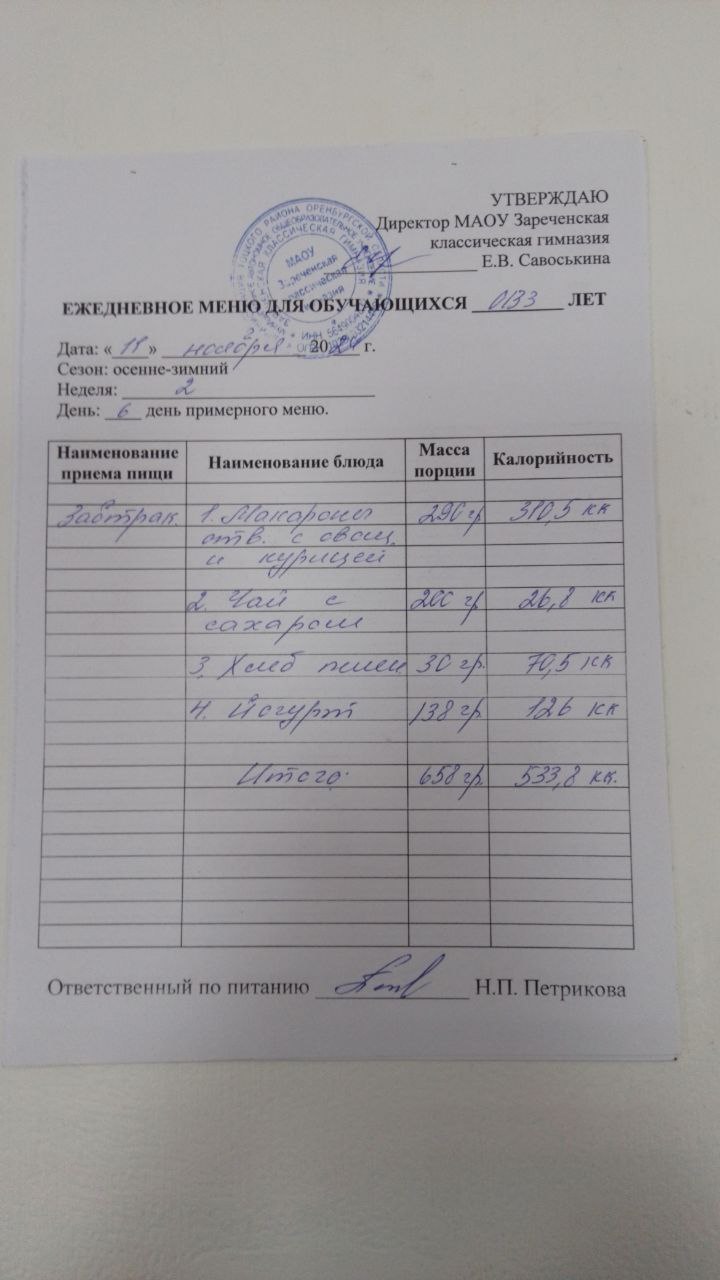 УТВЕРЖДАЮ
Директор МАОУ Зареченская
классическая гимназия
Е.В. Савоськина
МАОУ
Зареченская
классическая
гимназия
ЕЖЕДНЕВНОЕ МЕНЮ ДЛЯ ОБУЧАЮЩИХСЯ ОВЗ ЛЕТ
Дата: «11» ноября 2024 г.
Сезон: осенне-зимний
Неделя: 2
День: 6 день примерного меню.
Наименование приема пищи Наименование блюда Масса порции Калорийность
Завтрак 1. Макароны 290 гр 310,5 кк
отв. с овощ.
и курицей
2. Чай с 200 гр 26,8 кк
сахаром
3. Хлеб пшен. 30 гр. 70,5 кк
4. Йогурт 138 гр. 126 кк
Итого: 658 гр. 533,8 кк.
Ответственный по питанию Н.П. Петрикова